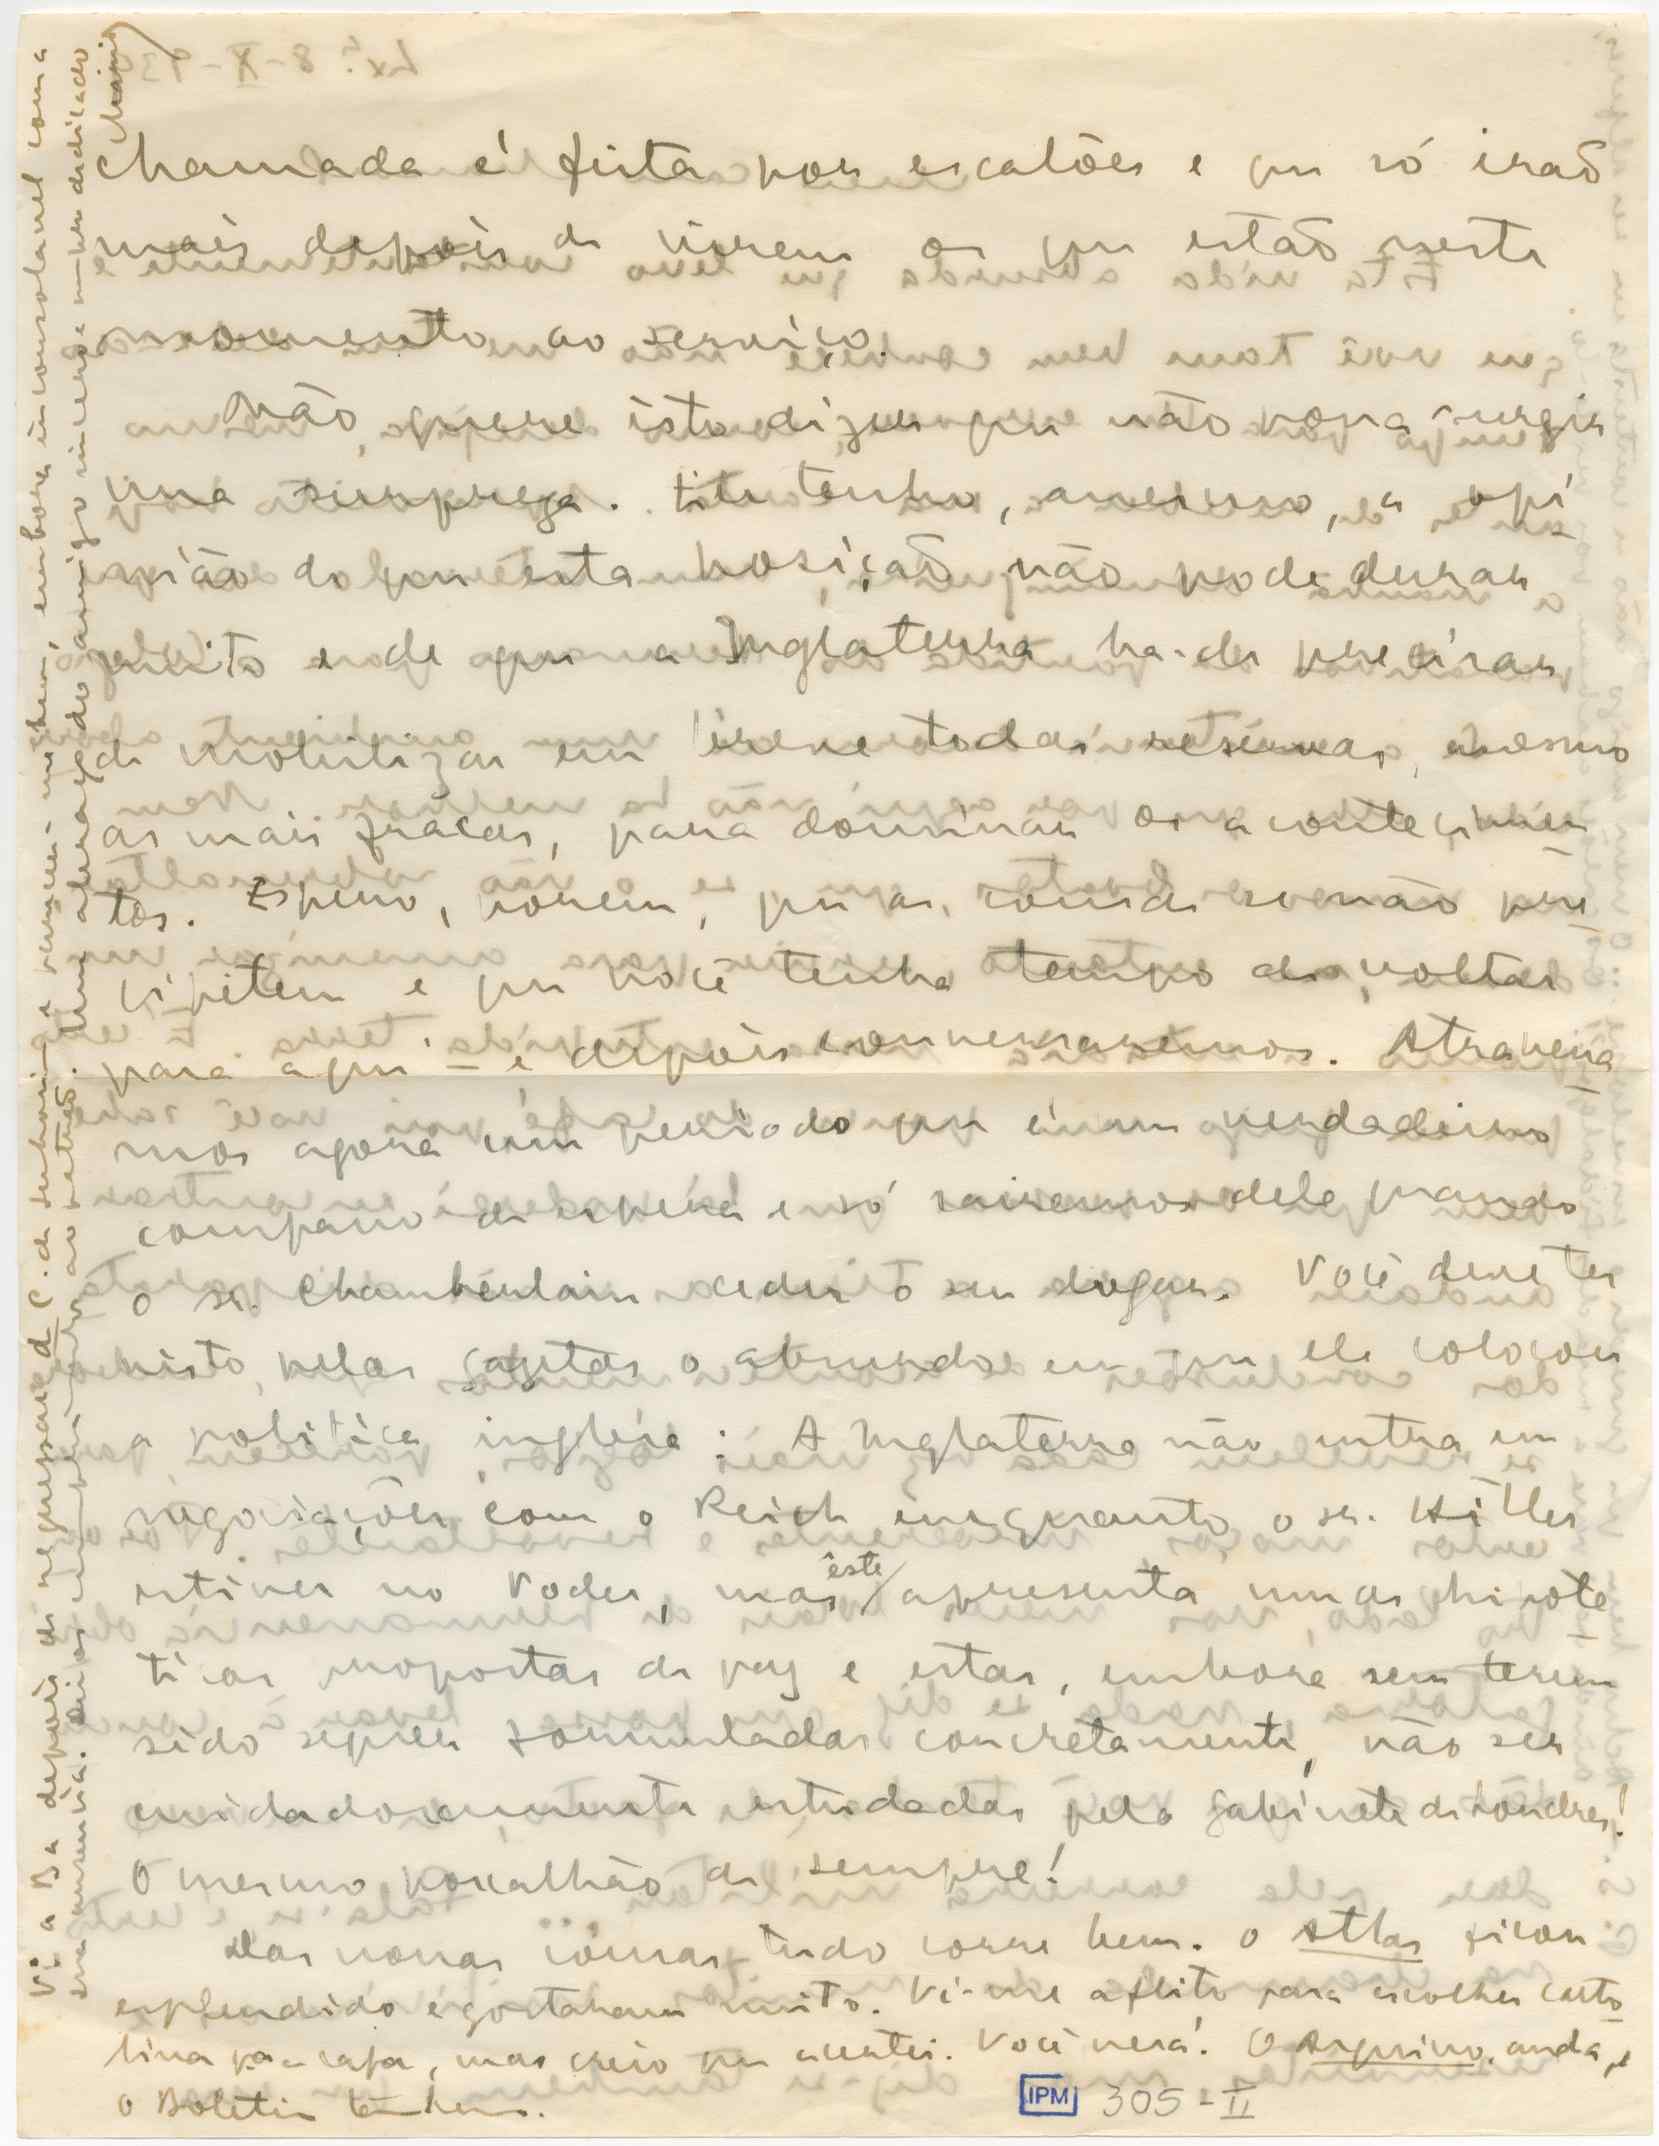 chamada é feita por escalões e que só irão
mais depois de virem os que estão neste
momento ao serviço.
Não quere isto dizer que não possa surgir
uma surpreza. Eu tenho, mesmo, a opi
nião de que esta posição não pode durar
muito e de que a Inglaterra ha-de precisar
de mobilizar em breve todas reservas, mesmo
as mais fracas, para dominar os acontecimen
tos. Espero, porem, que as coisas se não pre
cipitem e que você tenha tempo de voltar
para aqui – e depois conversaremos. Atravessa
mos agora um periodo que é um verdadeiro
compasso de espera e só sairemos dele quando
o sr. Chamberlain ceder o seu lugar. Você deve ter
visto, pelas gazetas o absurdo em que ele colocou
a politica inglesa: A Inglaterra não entra em
negociações com o Reich enquanto o sr. Hitler
estiver no Poder, mas êste apresenta umas hipote
ticas propostas de paz e estas, embora sem terem
sido sequer formuladas concretamente, vão ser
cuidadosamente estudadas pelo gabinete de Londres!
O mesmo porcalhão de sempre!
Das nossas coisas, tudo corre bem. O Atlas ficou
esplendido e gostaram muito. Vi-me aflito para escolher carto
lina pa a capa, mas creio que acertei. Você verá! O Arquivo anda, e
o Boletim também.
IPM 305-II
Vi a B a depois de regressar de C. de senhorim e pareceu-me bem, embora inconsolavel com a
sua ausencia.
Um abraço do amigo sincero e mto dedicado
Mario